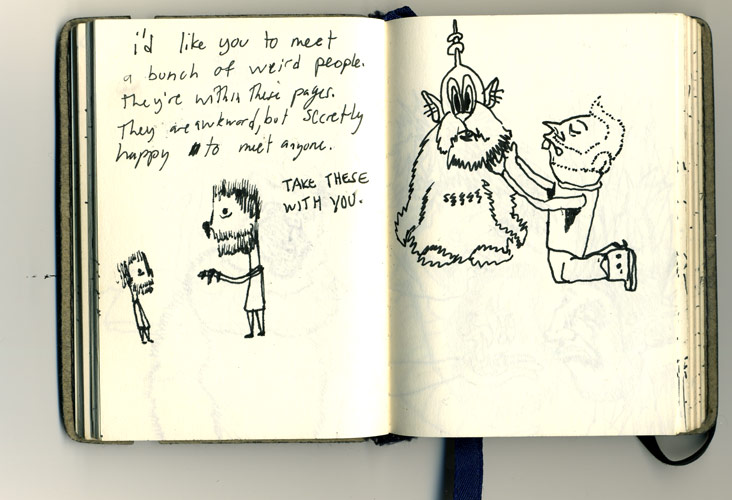 i'd like you to meet
a bunch of weird people.
they're within these pages.
They are awkword, but secretly
happy to meet anyone.
TAKE THESE
WITH YOU.